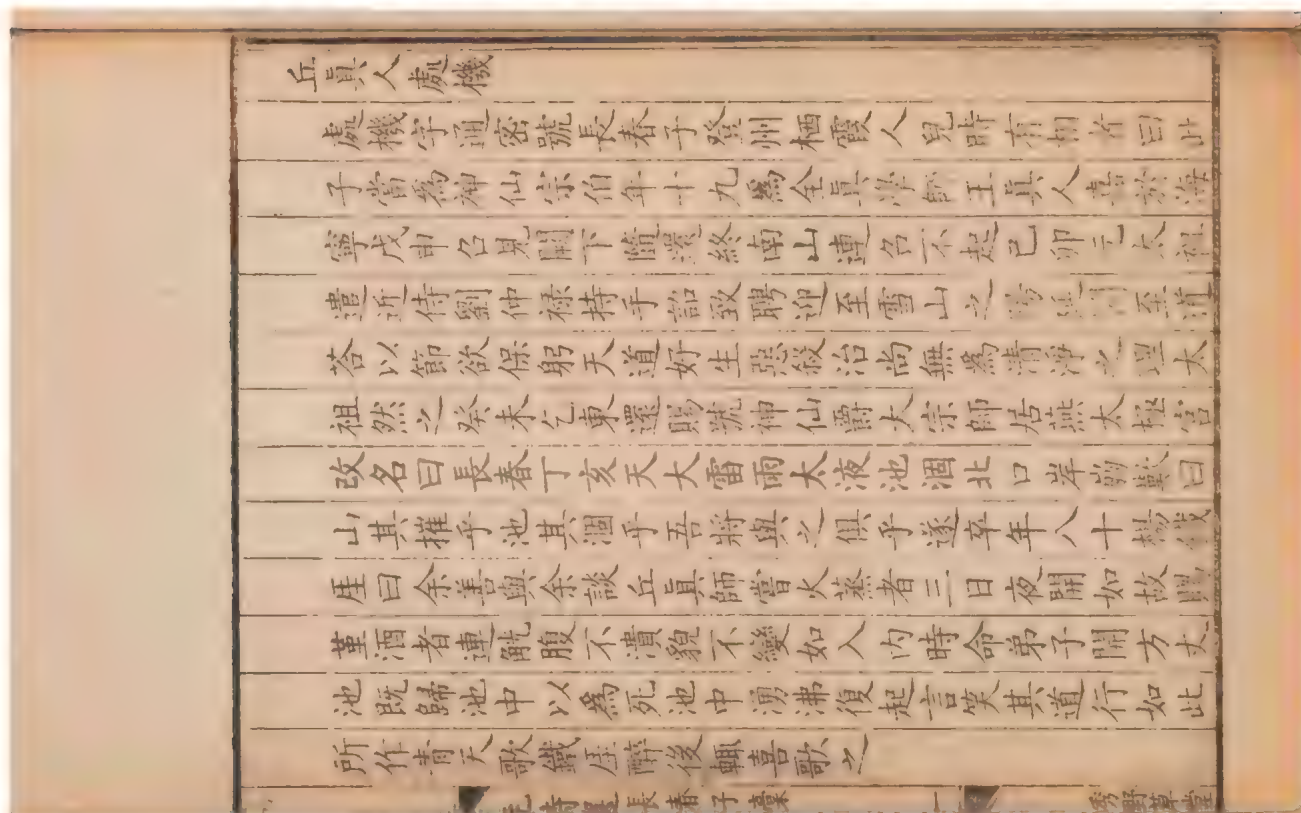 丘眞人處機
處機字通密號長春子登州栖霞人兒時有相者曰此
子當爲神仙宗伯年十九爲全眞學師王眞人於海
寧戊申召見闕下隨還終南山連召不起己卯元太祖
遣近侍劉仲祿持手詔致聘迎至雪山之陽延問至道
荅以節欲保躬天道好生惡殺治尚無爲清淨之理太
祖然之癸未乞東還賜號神仙爵大宗師居燕太極宮
改名曰長春丁亥天大雷雨太液池涸北口岸崩歎曰
山其摧乎池其涸乎吾將與之俱乎遂卒年八十楊鐵
厓曰余善與余談丘眞師嘗火蒸者三日夜開如故賜
菫酒者連觥腹不潰貌不變如入內時命弟子開方丈
池既歸池中以爲死池中湧沸復起言笑其道行如此
所作青天歌鐵厓醉後輒喜歌之
元詩選 長春子稾 一 秀野草堂